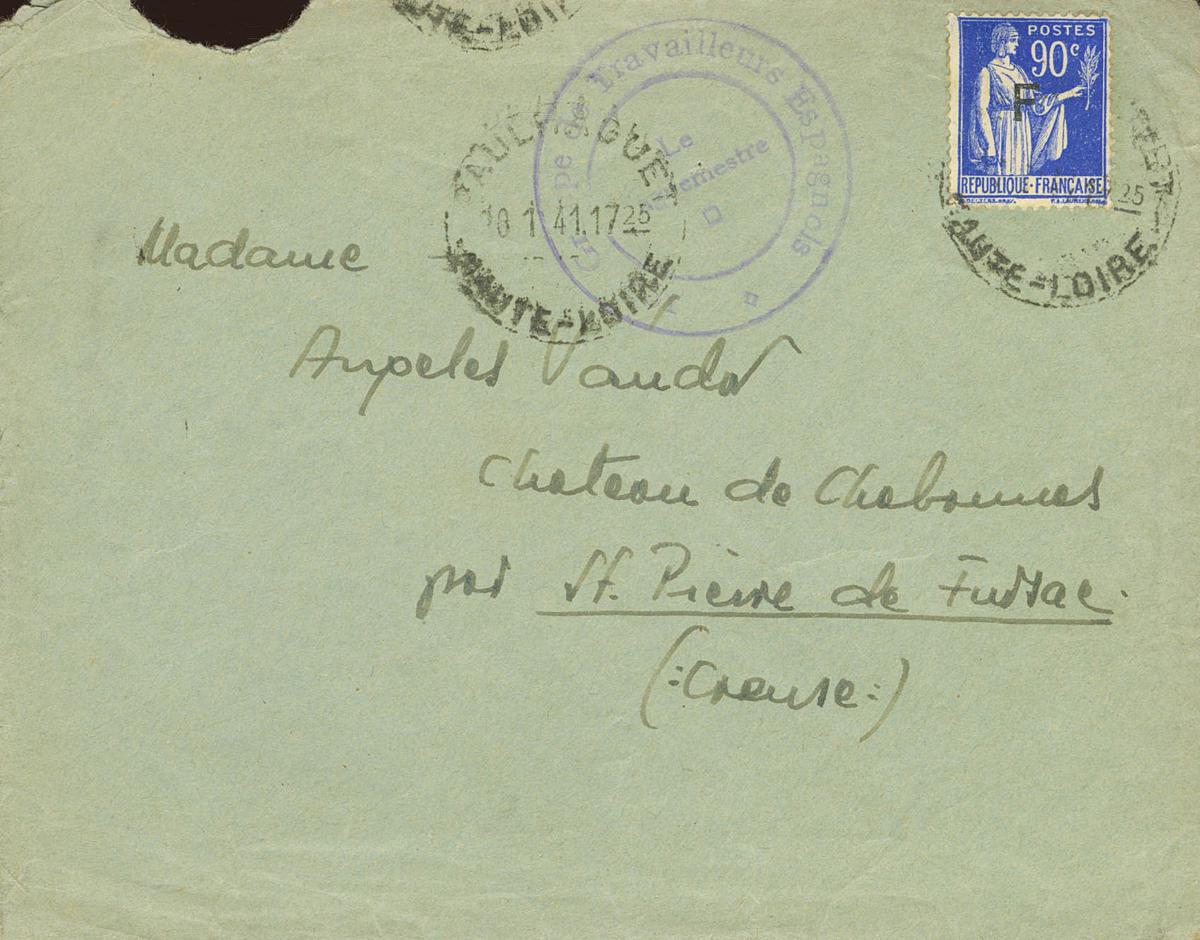 HAUTE-LOIRE
Groupe de Travailleurs Espagnols
Le
POSTES
90c
F
REPUBLIQUE-FRANÇAISE
PAULHAGUET
18 1 41.17 25
HAUTE-LOIRE
25
HAUTE-LOIRE
Madame
Angeles
Chateau de Chabannes
par St. Pierre de Fursac.
(:Creuse:)